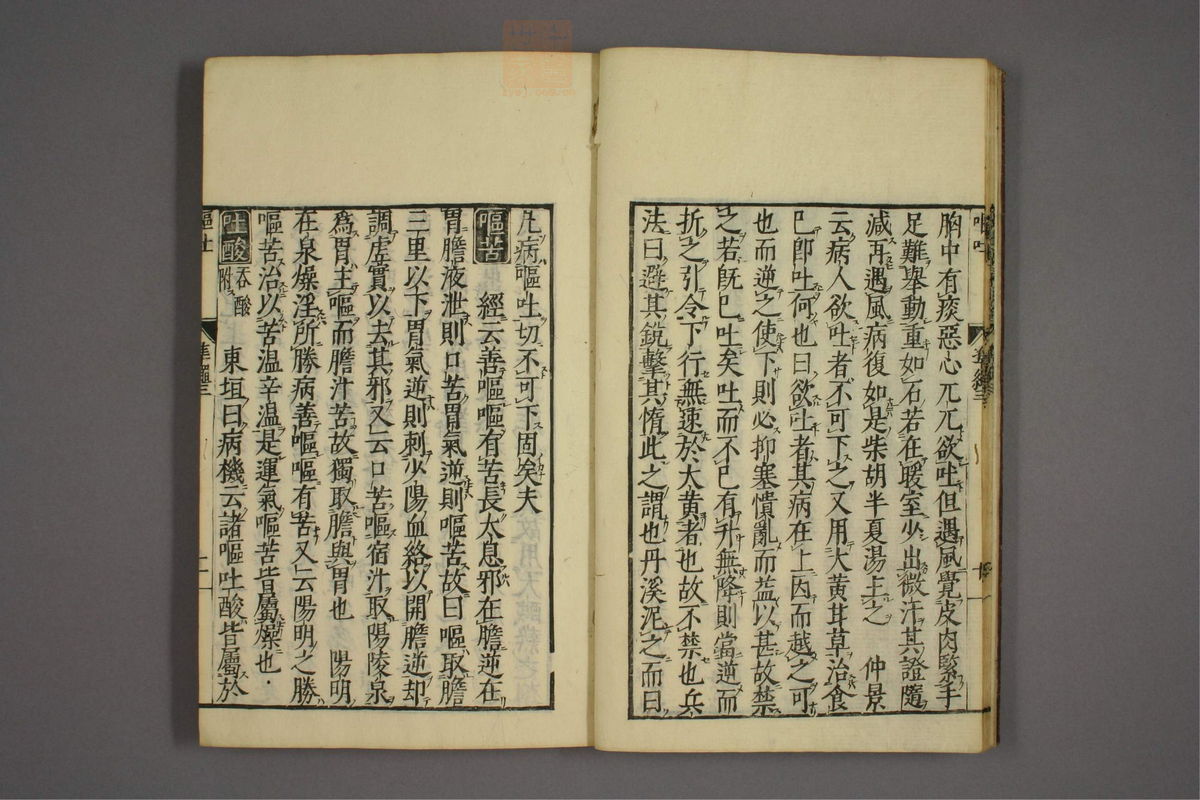 胸中有痰惡心兀兀欲吐但遇風覺皮肉緊手
足難舉動重如石若在暖室少出微汗其證隨
減再遇風病復如是柴胡半夏湯上之　仲景
云病人欲吐者不可下之又用大黄甘草治食
已卽吐何也曰欲吐者其病在上因而越之可
也而逆之使下則必抑塞憒亂而益以甚故禁
之若旣已吐矣吐而不已有升無降則當逆而
折之引令下行無速於大黄者也故不禁也兵
法曰避其銳擊其惰此之謂也丹溪泥之而曰
凡病嘔吐切不可下固矣夫
嘔苦　經云善嘔嘔有苦長太息邪在膽逆在
胃膽液泄則口苦胃氣逆則嘔苦故曰嘔取膽
三里以下胃氣逆則刺少陽血絡以閉膽逆却
調虗實以去其邪又云口苦嘔宿汁取陽陵泉
爲胃主嘔而膽汁苦故獨取膽與胃也　陽明
在泉燥淫所勝病善嘔嘔有苦又云陽明之勝
嘔苦治以苦温辛温是運氣嘔苦皆屬燥也
吐酸 吞酸附　東垣曰病機云諸嘔吐酸皆屬於
嘔吐